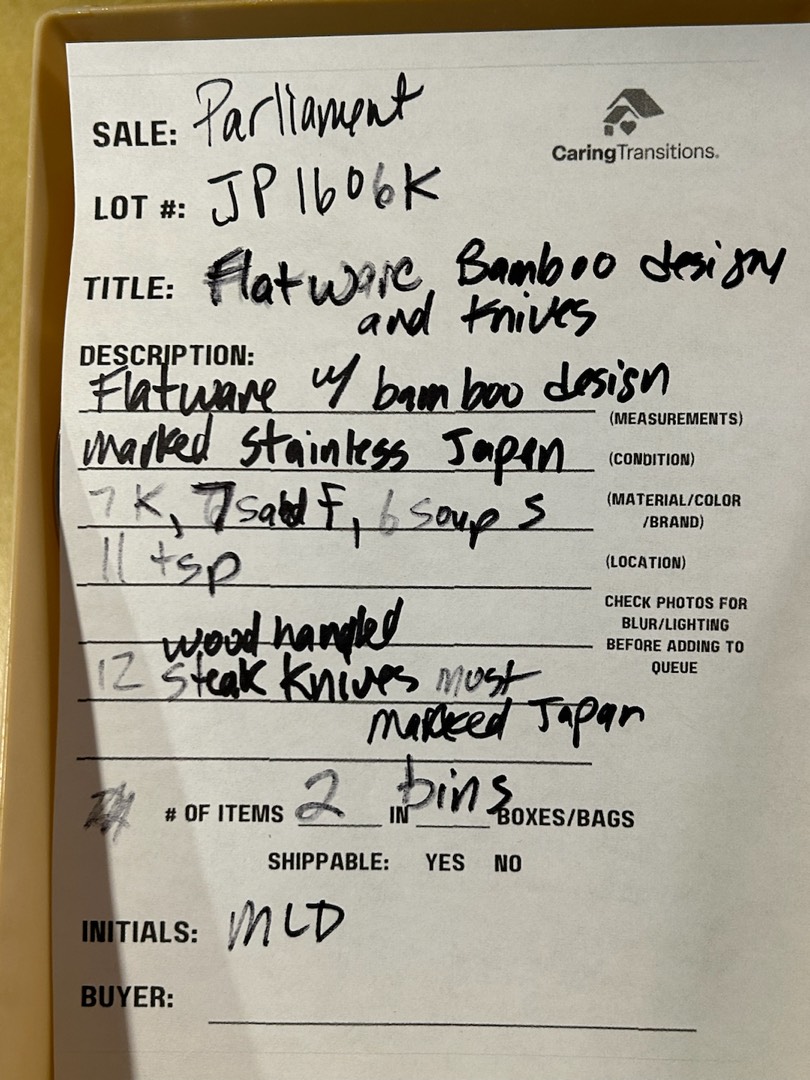 SALE: Parliament
CaringTransitions.
LOT #: JP1606K
TITLE: Flatware, Bamboo design
and Knives
DESCRIPTION:
Flatware w/ bamboo design
(MEASUREMENTS)
marked Stainless Japan
(CONDITION)
7 K, 7 salad F, 6 soup S
(MATERIAL/COLOR
/BRAND)
11 tsp
(LOCATION)
CHECK PHOTOS FOR
BLUR/LIGHTING
BEFORE ADDING TO
QUEUE
wood handled
12 Steak Knives most
marked Japan
# OF ITEMS 2 IN bins BOXES/BAGS
SHIPPABLE: YES NO
INITIALS: MLD
BUYER: